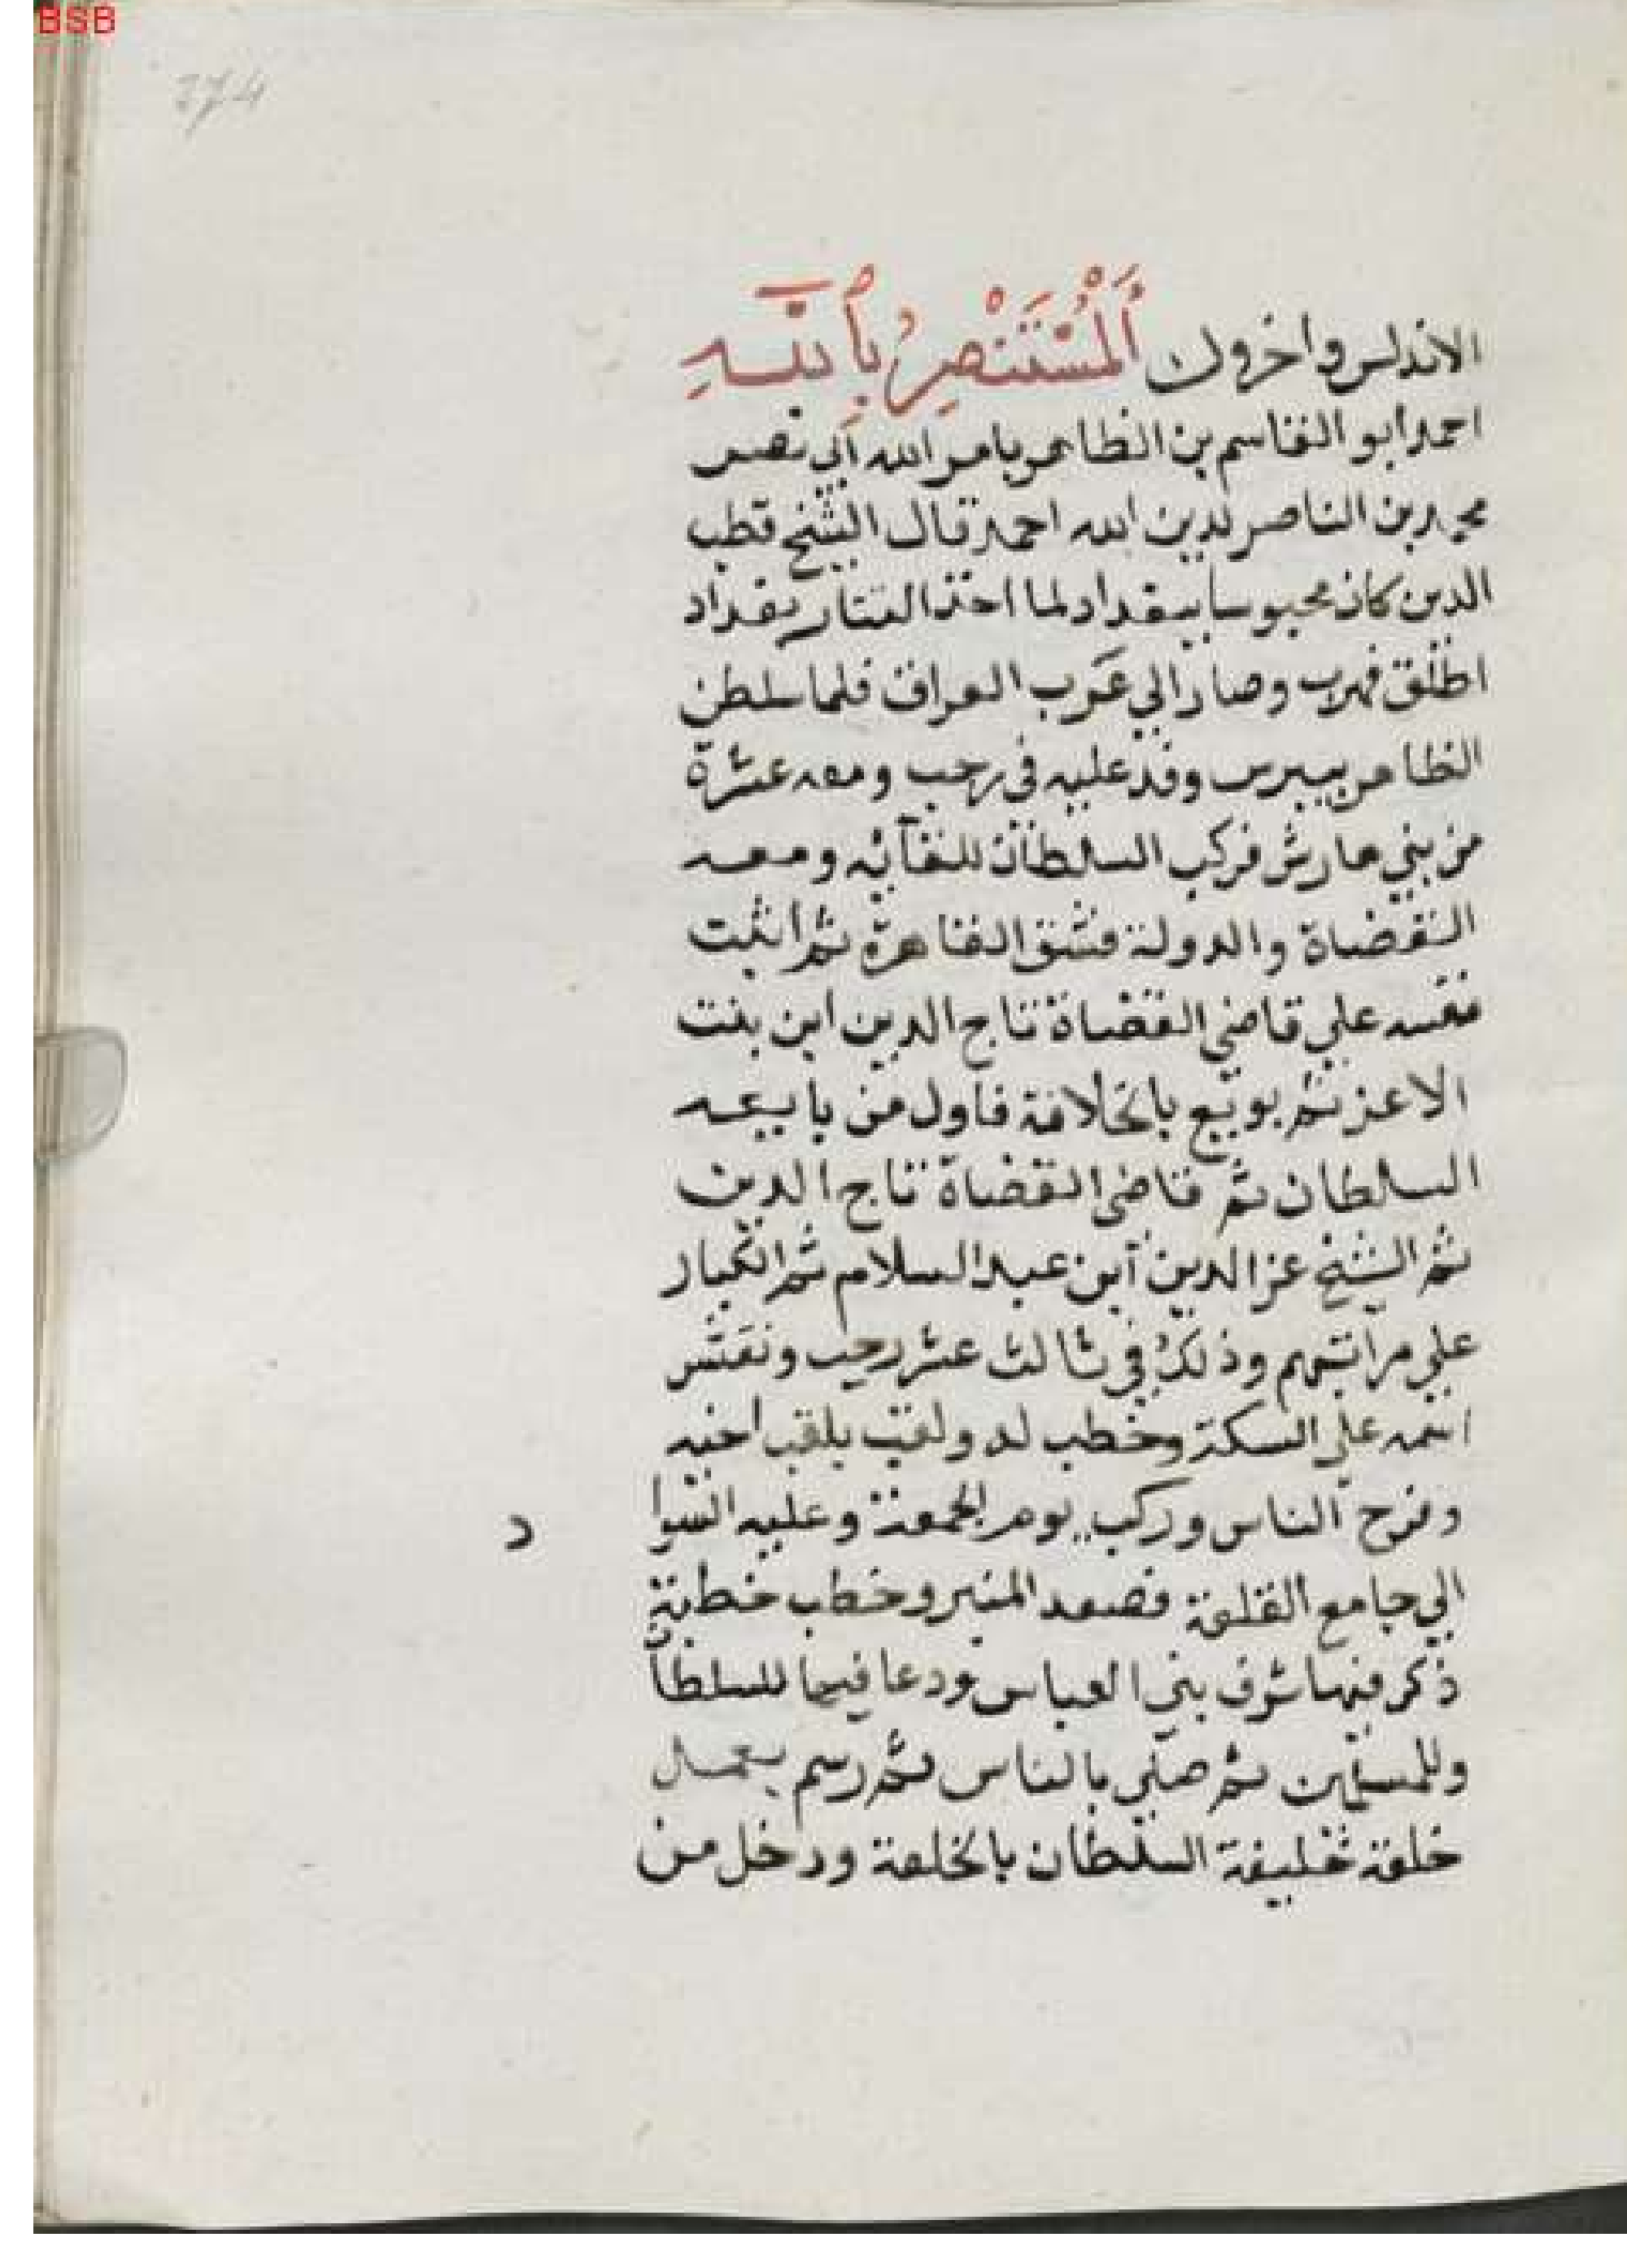 BSB
274
الاندلس واخرون اَلْمُسْتَنْصِرُ بِاللّٰهِ
احمد ابو القاسم بن الظاهر بامر الله ابي نصر
محمد بن الناصر لدين الله احمد قال الشيخ قطب
الدين كان محبوسا ببغداد لما اخذ التتار بغداد
اطلق فهرب وصار الي عرب العراق فلما سلطن
الظاهر بيبرس وفد عليه في رجب ومعه عشرة
من بني مهارش فركب السلطان للقائه ومعه
القضاة والدولة فشق القاهرة ثم اثبت
نفسه علي قاضي القضاة تاج الدين ابن بنت
الاعز ثم بويع بالخلافة فاول من بايعه
السلطان ثم قاضي القضاة تاج الدين
ثم الشيخ عز الدين ابن عبد السلام ثم الكبار
علي مراتبهم وذلك في ثالث عشر رجب ونقش
اسمه علي السكة وخطب له ولقب بلقب اخيه
وفرح الناس وركب يوم الجمعة وعليه السوا د
الي جامع القلعة فصعد المنبر وخطب خطبة
ذكر فيها شرف بني العباس ودعا فيها للسلطا
وللمسلمين ثم صلي بالناس ثم رسم بعمل
خلعة خليفة السلطان بالخلعة ودخل من